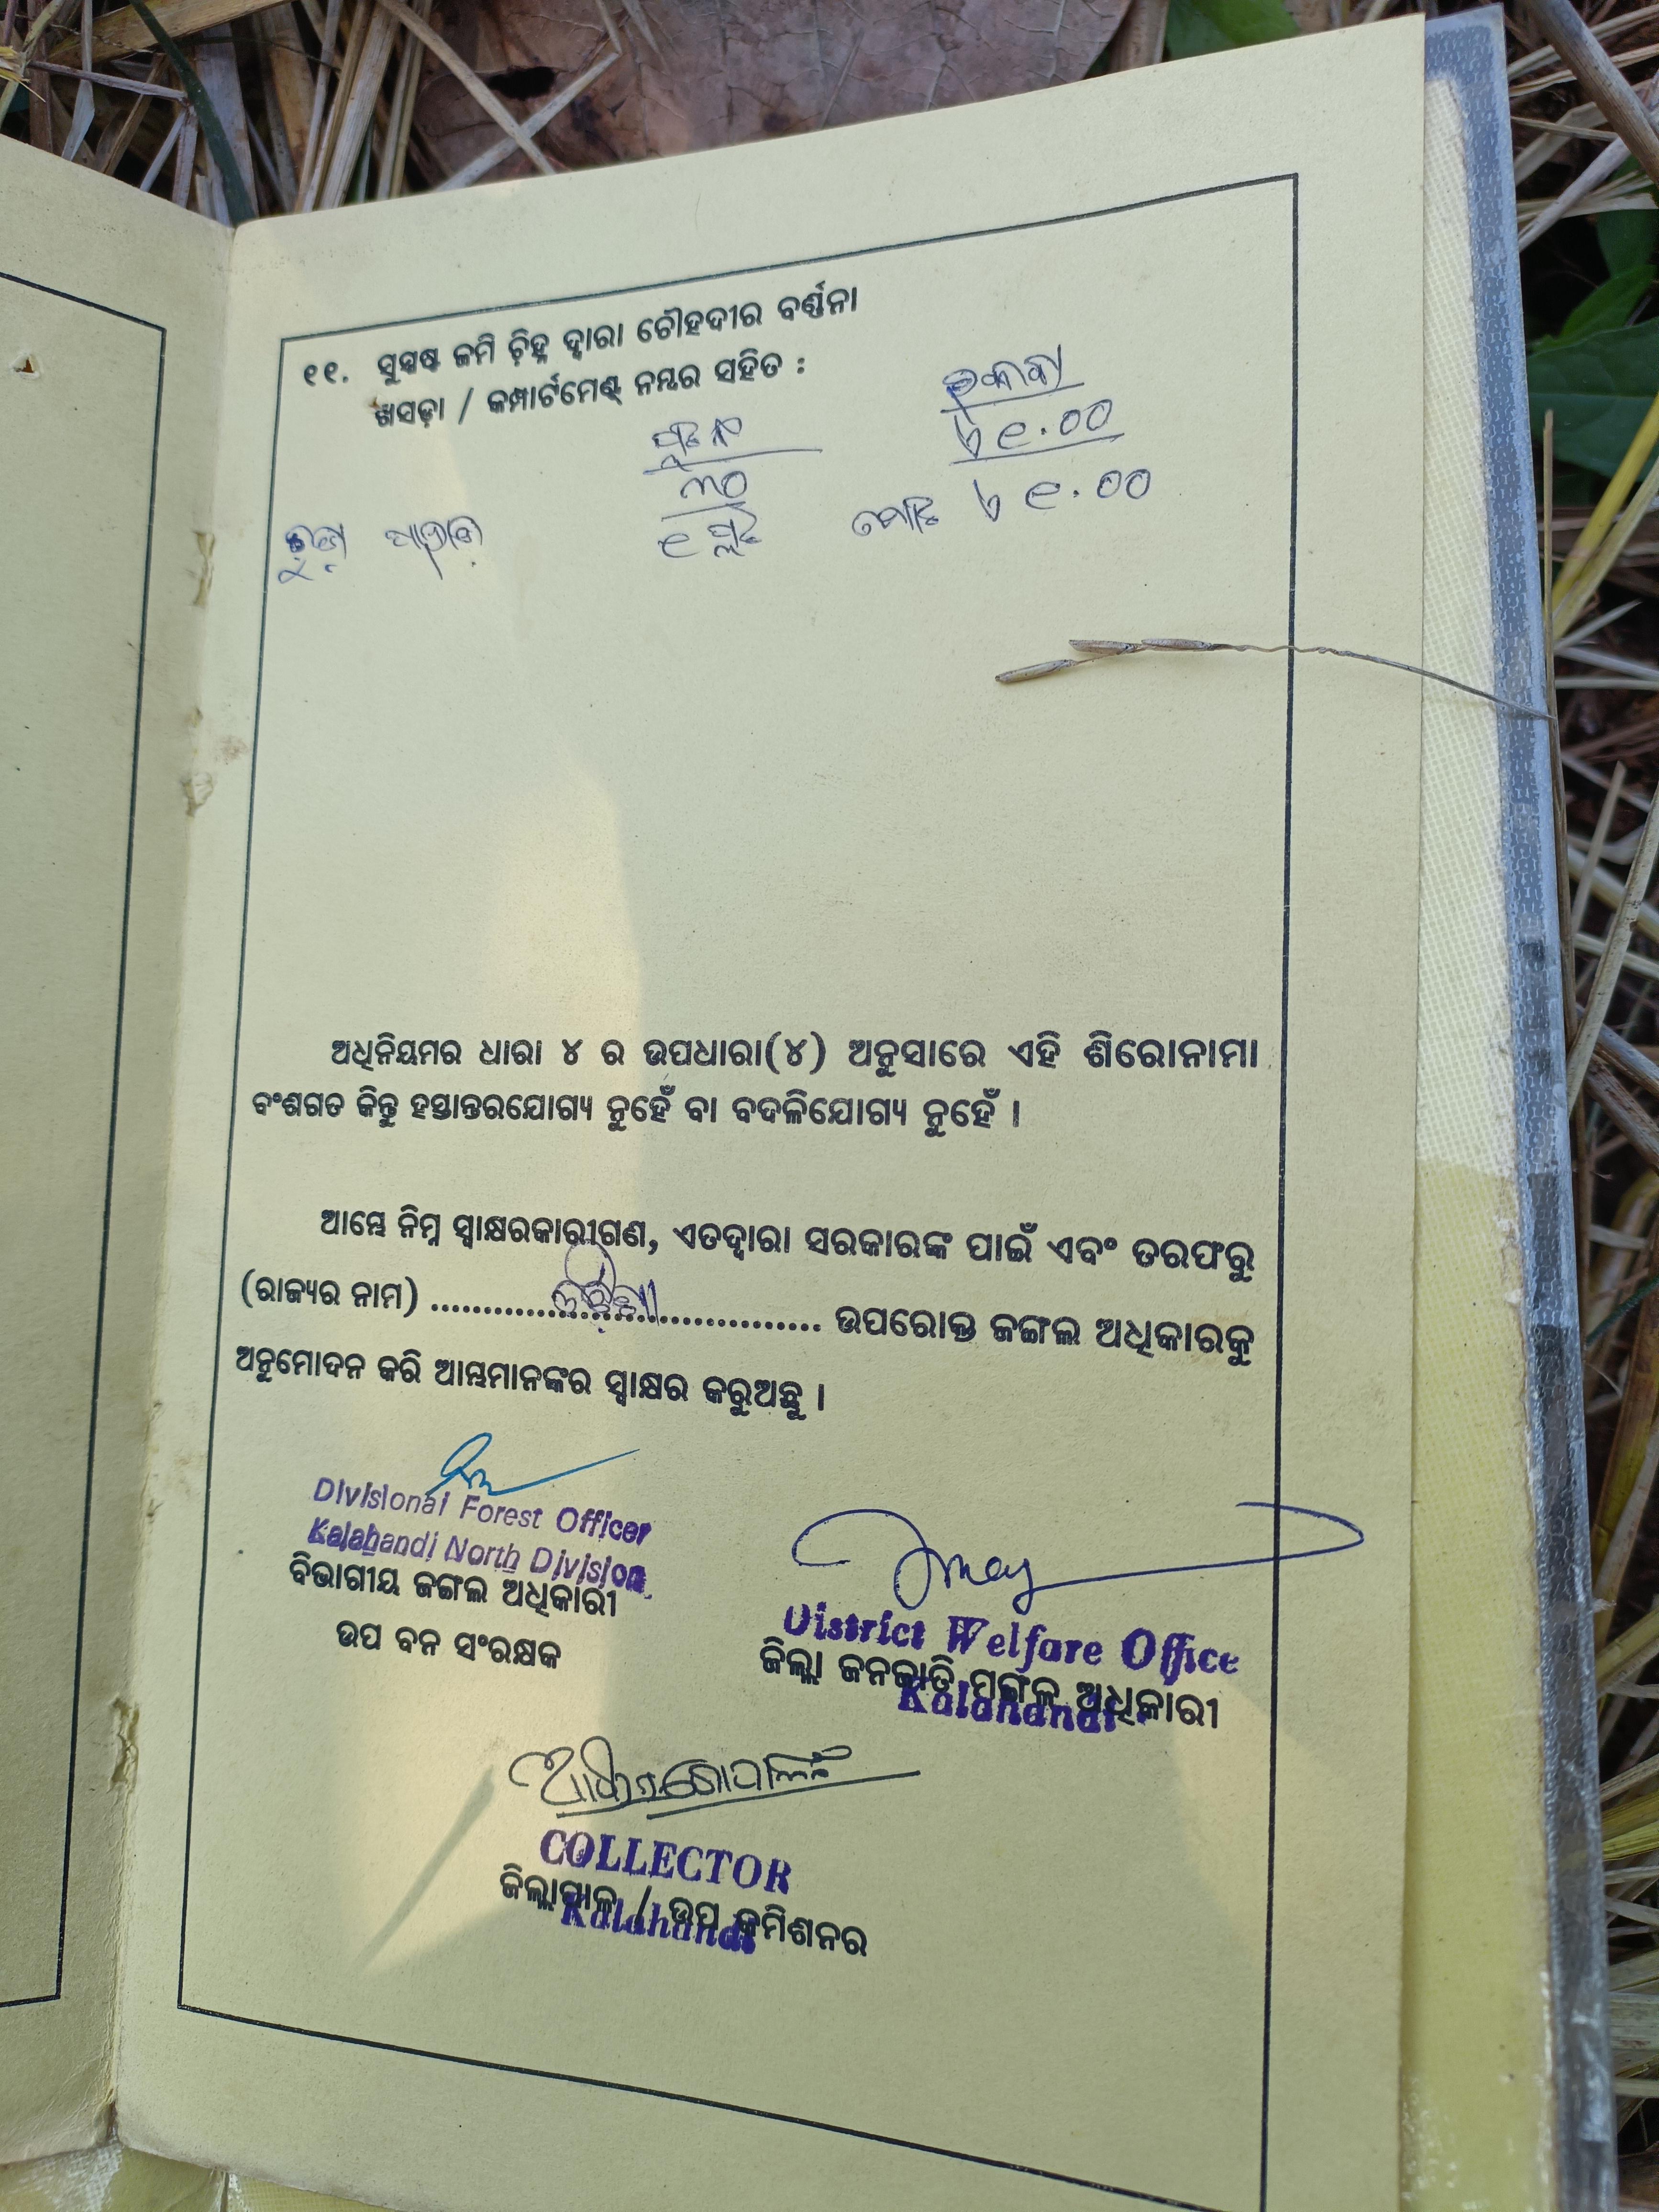 ୧୧. ସୁସ୍ପଷ୍ଟ ଜମି ଚିହ୍ନ ଦ୍ୱାରା ଚୌହଦୀର ବର୍ଣ୍ଣନା
ଖସଡ଼ା / କମ୍ପାର୍ଟମେଣ୍ଟ୍ ନମ୍ବର ସହିତ :
ରକବା
ଏ ୧.୦୦
୩୦
୧ ପ୍ଲଟ ମୋଟ ଏ ୧.୦୦
ଅଧିନିୟମର ଧାରା ୪ ର ଉପଧାରା(୪) ଅନୁସାରେ ଏହି ଶିରୋନାମା
ବଂଶଗତ କିନ୍ତୁ ହସ୍ତାନ୍ତରଯୋଗ୍ୟ ନୁହେଁ ବା ବଦଳିଯୋଗ୍ୟ ନୁହେଁ ।
ଆମ୍ଭେ ନିମ୍ନ ସ୍ୱାକ୍ଷରକାରୀଗଣ, ଏତଦ୍ଦ୍ୱାରା ସରକାରଙ୍କ ପାଇଁ ଏବଂ ତରଫରୁ
(ରାଜ୍ୟର ନାମ) ........ ଓଡ଼ିଶା ........ ଉପରୋକ୍ତ ଜଙ୍ଗଲ ଅଧିକାରକୁ
ଅନୁମୋଦନ କରି ଆମ୍ଭମାନଙ୍କର ସ୍ୱାକ୍ଷର କରୁଅଛୁ ।
Divisional Forest Officer
Kalahandi North Division
ବିଭାଗୀୟ ଜଙ୍ଗଲ ଅଧିକାରୀ
ଉପ ବନ ସଂରକ୍ଷକ
District Welfare Office
ଜିଲ୍ଲା ଜନଜାତି ମଙ୍ଗଳ ଅଧିକାରୀ
Kalahandi
COLLECTOR
ଜିଲ୍ଲାପାଳ / ଉପ କମିଶନର
Kalahandi